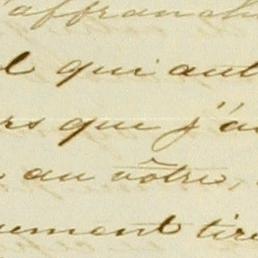 'affranch
l qui aut
rs que j'a
au vôtre,
uement tire